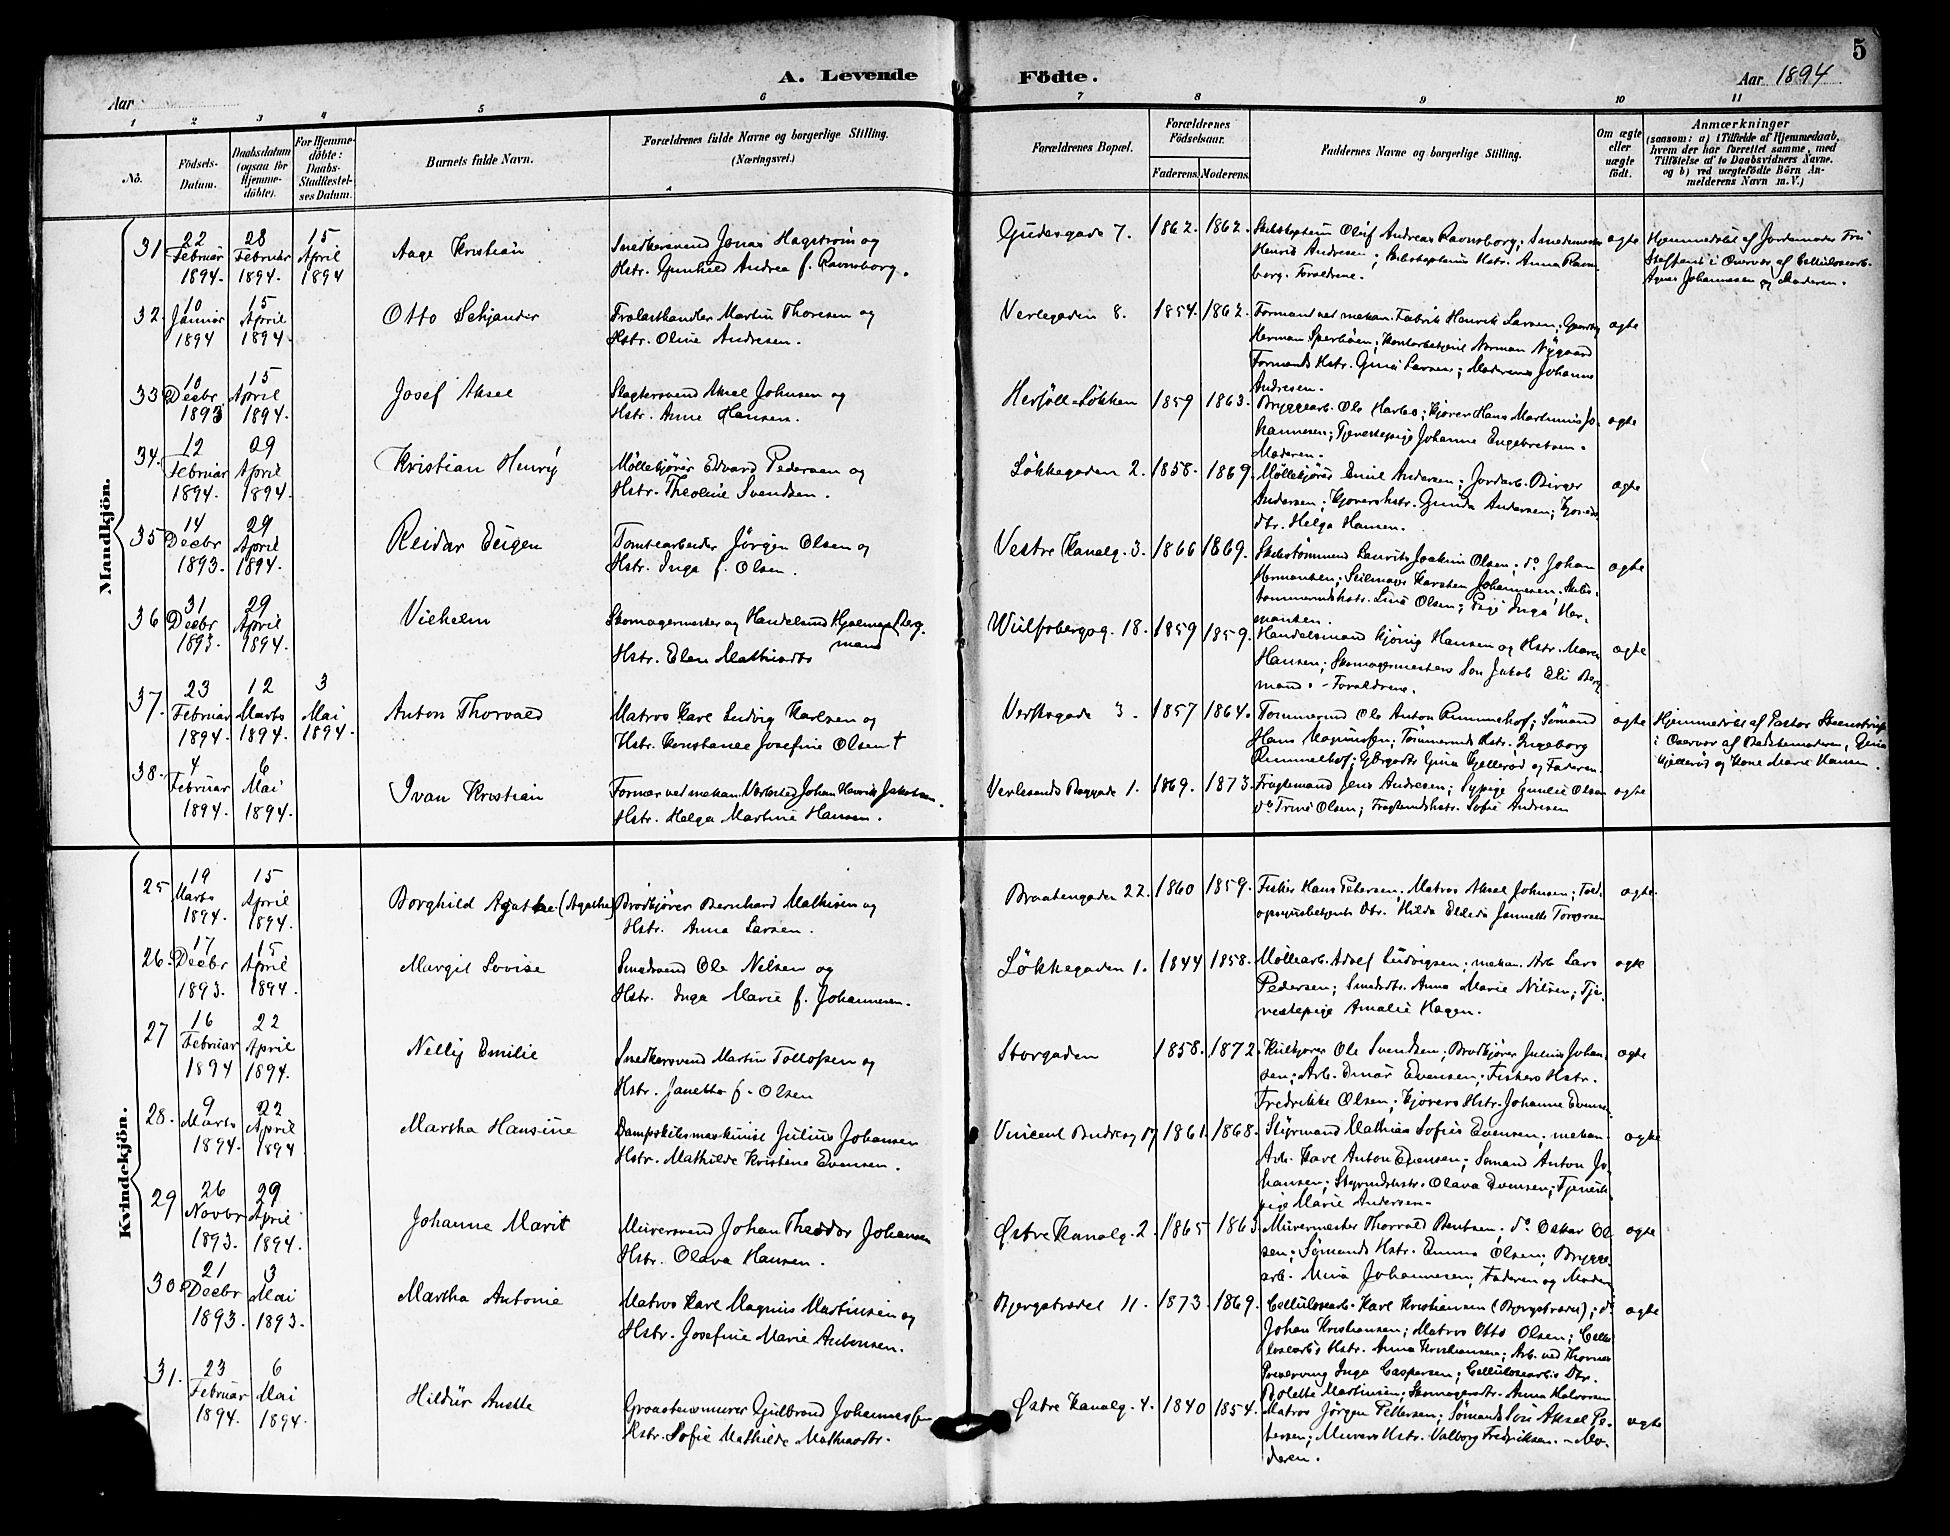 5
A. Levende Födte.
Aar
Aar 1894
1 2 3 4 5 6 7 8 9 10 11
No.
Födsels-Datum.
Daabsdatum (ogsaa for Hjemme-döbte).
For Hjemme-döbte: Daabs-Stadfæstel-ses Datum.
Barnets fulde Navn.
Forældrenes fulde Navne og borgerlige Stilling. (Næringsvei.)
Forældrenes Bopæl.
Forældrenes Födselsaar.
Faderens. Moderens.
Faddernes Navne og borgerlige Stilling.
Om ægte eller uægte födt.
Anmærkninger
(saasom: a) i Tilfælde af Hjemmedaab, hvem der har forrettet samme, med Tilföielse af to Daabsvidners Navne, og b) ved uægtefödte Börn An-melderens Navn m. V.)
Mandkjön.
31 22 Februar 1894. 28 Februar 1894. 15 April 1894 Aage Kristian
Snedkersvend Jonas Hagström og
Hstr. Gunhild Andrea f. Ravnsborg.
Gudesgade 7. 1862. 1862.
Oluf Andreas Ravnsborg;
Henrik Andresen; Hstr. Anna Ravns-
borg. Forældrene.
ægte
Hjemmedöbt af Jordemoder Fru
Steffens i Overvær af Cellulosearb.
Agnes Johannesen og Moderen.
32. 10 Januar 1894 15 April 1894. Otto Schjander
Martin Thoresen og
Hstr. Oline Andresen.
Verlegaden 8. 1854. 1862.
Formand ved mekan. Fabrik Henrik Larsen;
Herman Sperböen; Norman Nygaard
Formands Hstr. Gina Larsen; Moderens Johanne
Andresen.
ægte
33 10 Decbr 1893 15 April 1894. Josef Aksel
Slagtersvend Aksel Johnsen og
Hstr. Anne Hansen.
Herföll-Løkken 1859 1863.
Bryggearb. Ole Harbo; Kjører Hans Martinius Jo-
hannesen; Tjenestepige Johanne Engebretsen.
Moderen.
ægte
34. 12 Februar 1894. 29 April 1894. Kristian Henry
Møllekjører Edvard Pedersen og
Hstr. Theoline Svendsen.
Løkkegaden 2. 1858. 1869.
Møllekjører Emil Andersen; Jordarb. Birger
Andersen; Kjørershstr. Gunda Andersen;
dtr. Helga Hansen.
ægte
35 14 Decbr 1893. 29 April 1894. Reidar Eugen
Tomtearbeider Jörgen Olsen og
Hstr. Inga f. Olsen.
Vestre Kanalg. 3. 1866 1869.
Skibstömmermd Lauritz Joakim Olsen; do Johan
Hermansen; Seilmager Karsten Johannesen.
Hstr. Lina Olsen; Pige Inga Her-
mansen.
ægte
36 31 Decbr 1893. 29 April 1894. Vilhelm
Skomagermester og Handelsmd Hjalmar Berg-
mand
Hstr. Elen Mathisdtr
Wulfsbergsg. 18. 1859 1859.
Handelsmand Kjönig Hansen og Hstr. Maren
Hansen; Skomagermesters Sön Jakob Eli Berg-
mand. - Forældrene.
ægte
37. 23 Februar 1894. 12 Marts 1894. 3 Mai 1894. Anton Thorvald
Matros Karl Ludvig Karlsen og
Hstr. Konstance Josefine Olsen †
Verftsgade 3. 1857 1864.
Tömmermd Ole Anton Rummelhof; Sömand
Hans Magnussen; Tömmermds Hstr. Ingeborg
Rummelhof; Gina Kjellerød og Faderen.
ægte
Hjemmedöbt af Pastor Steenstrup
i Overvær af Bedstemoderen, Gina
Kjellerød og Kone Marie Hansen.
38. 4 Februar 1894. 6 Mai 1894. Ivan Kristian
Former ved mekan. Værksted Johan Henrik Jakobsen.
Hstr. Helga Martine Hansen.
1. 1869. 1873.
Fragtemand Jens Andresen; Sypige Emilie Olsen
do Trine Olsen; Fragtmdshstr. Sofie Andresen
ægte
Kvindekjön.
25 19 Marts 1894. 15 April 1894. Borghild Agathe (Agathe)
Brödkjører Bernhard Mathisen og
Hstr. Anna Larsen.
Braatengaden 22. 1860 1859.
Fisker Hans Petersen, Matros Aksel Johnsen; Told-
opsynsbetjents Dtr. Hilda Elleda Jannette Torgersen
ægte.
26. 17 Decbr 1893. 15 April 1894. Margit Lovise
Smedsvend Ole Nilsen og
Hstr. Inga Marie f. Johannesen.
Løkkegaden 1. 1844 1858.
Møllearb. Adolf Ludvigsen; mekan. Arb. Lars
Pedersen; Smedsdtr. Anna Marie Nilsen; Tje-
nestepige Amalie Hagen.
ægte
27 16 Februar 1894 22 April 1894. Nelly Emilie
Snedkersvend Martin Tollofsen og
Hstr. Janetha f. Olsen
Storgaden 1858. 1872.
Kulkjører Ole Svendsen; Brödkjører Julius Johan-
sen; Arb. Einar Evensen; Fiskers Hstr.
Fredrikke Olsen; Kjørers Hstr. Johanne Evensen
ægte
28. 9 Marts 1894. 22 April 1894 Martha Hansine
Dampskibsmaskinist Julius Johansen
Hstr. Mathilde Kristine Evensen.
Vincent Budesg 17 1861. 1868.
Styrmand Mathias Sofus Evensen; mekan.
Arb. Karl Anton Evensen; Sömand Anton Jo-
hansen; Styrmdshstr. Olava Evensen; Tjeneste-
pige Marie Andersen.
ægte
29 26 Novbr 1893. 29 April 1894. Johanne Marit
Murersvend Johan Theodor Johansen
Hstr. Olava Hansen.
Østre Kanalg. 2. 1865 1863.
Murermester Thorvald Bentsen; do Oskar Ol-
sen; Sömands Hstr. Emma Olsen; Brygge-
arb. Mina Johannesen; Faderen og Moderen
ægte
30. 21 Decbr 1893. 3 Mai 1893. Martha Antonie
Matros Karl Magnus Martinsen og
Hstr. Josefine Marie Antonsen.
Bjergstrædet 11. 1873. 1869.
Cellulosearb. Karl Kristiansen (Bjergstrædet); do
Johan Kristiansen; Matros Otto Olsen; Cellu-
losearbs Hstr. Anna Kristiansen; Arb. ved Thornes
Preserving Inga Caspersen; Cellulosearbs Dtr.
Bolette Martinsen; Skomagerdtr. Anna Halvorsen
ægte
31. 23 Februar 1894. 6 Mai 1894. Hildur Anette
Graastensmurer Gulbrand Johannessen
Hstr. Sofie Mathilde Mathiasdtr.
Østre Kanalg. 4. 1840 1854.
Matros Jörgen Pettersen; Sömands Sön Aksel Pe-
tersen; Murers Hstr. Valborg Fredriksen. - Mo-
deren.
ægte